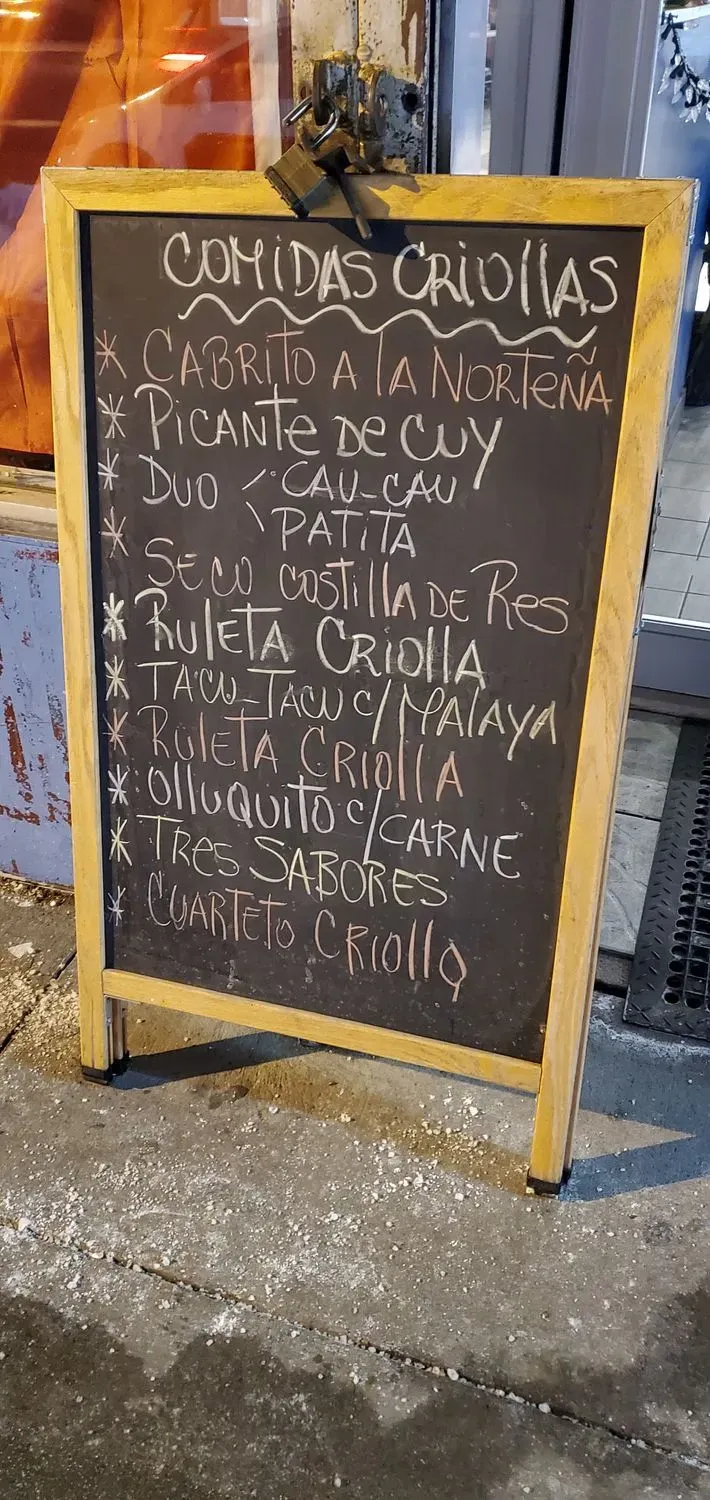 COMiDAS CRiOllAS
* CABRITO A lA NORTEÑA
* PICANTE DE CUY
* DUO CAU-CAU
PATITA
* SECO COSTIllA DE Res
* RULETA CRiOllA
* TACU-TACU C/MAlAYA
* RULETA CRiOllA
* OlluQUITO C/CARNE
* TRes SABORES
* CUARTETO CRiOllO